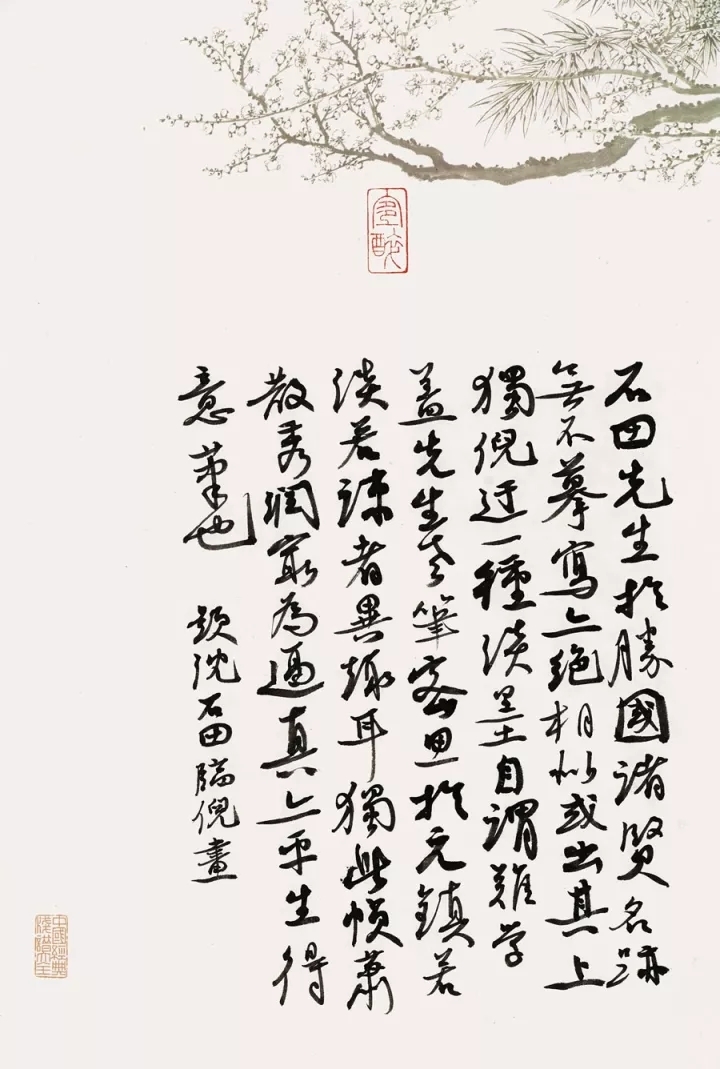 石田先生於勝國諸賢名跡
無不摹寫亦絕相似或出其上
獨倪迂一種淡墨自謂難学
盖先生老筆密思於元鎮若
淡若疎者異趣耳獨此幀蕭
散秀潤最為逼真亦平生得
意筆也
題沈石田臨倪畫